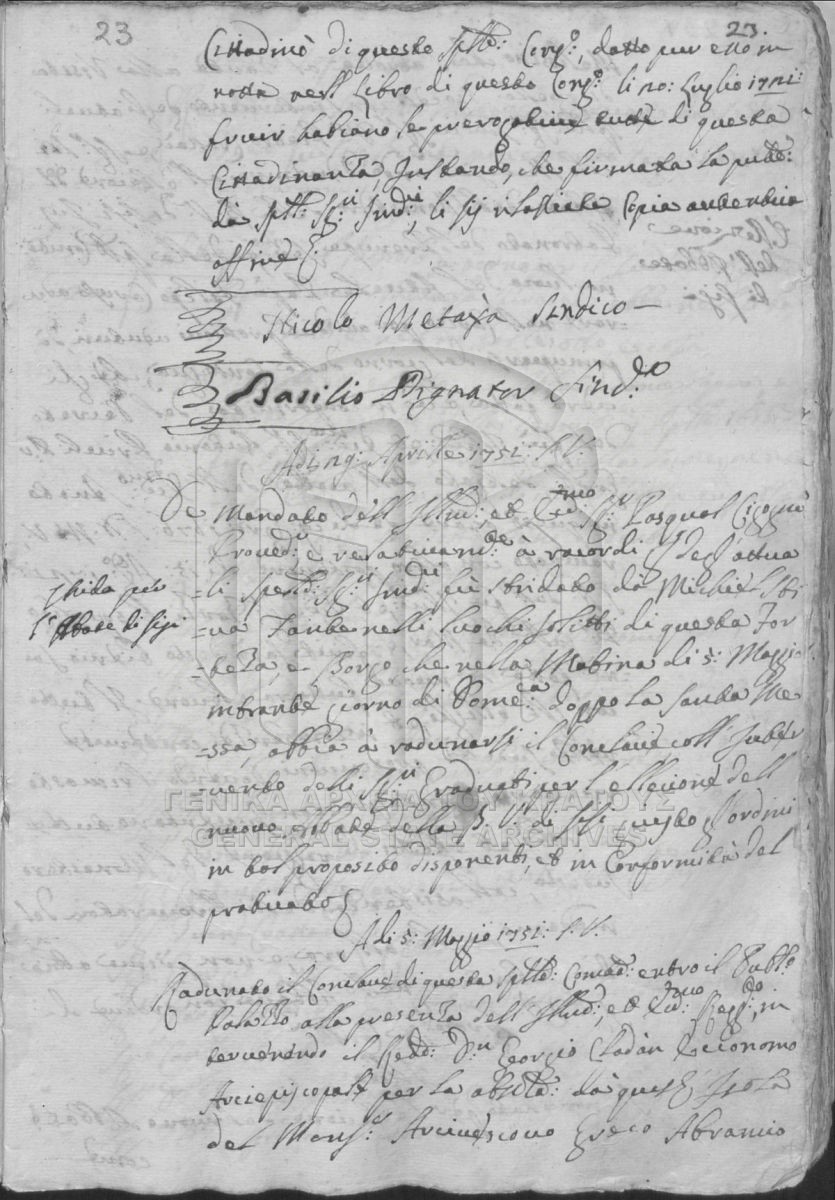 23
23.
Cittadino di questo Sptt: Cons:o, datto pur esso in
nota nell Libro di questo Cons:o li 20: Luglio 1721:
fruir habiano le prerogative tutte di questa
Cittadinanza, Instando, che firmata la pntt:
da Sptt: Sg:ri Sind:ci, li sij rilasciata Copia autentica
affine
Nicolo Metaxà Sindico
Basilio Pignator Sind:co
Adi 29: Aprile 1751: S.V.
De Mandato dell' Illmo:, et Ecc:mo Sg:r Pasqual Cicogna
Proved:r e relativam:te à racordi degl'attua
=li Spett: Sg:ri Sind:ci fù stridato da Michiel Sti
=va Tanbe nelli luochi soliti di questa For
=tezza, e Borgo che nella Matina di 5: Maggio
intrante giorno di Domen:ca doppo la Santa Me
=ssa, abbia à radunarsi il Conclave, coll' Inter
=vento delli Sg:ri Graduati per l'ellecione dell
nuovo Abbate della B. V. di Sissi, justo l'ordini
in tal proposito disponenti, et in Conformità del
praticato
Chida per
l'Abate di Sissi
Adi 5: Maggio 1751: S.V.
Radunato il Conclave di questa Sptt: Comtà: entro il Publ:o
Palazzo alla presenza dell' Illmo:, et Ecc:mo Regg:to, in
tervenendo il Redd: D:n Georgio Cladàn Economo
Arciepiscopale per la absenza: da quest' Isola
del Mons:r Arcivescovo Greco Abramio
ΓΕΝΙΚΑ ΑΡΧΕΙΑ ΤΟΥ ΚΡΑΤΟΥΣ
GENERAL STATE ARCHIVES